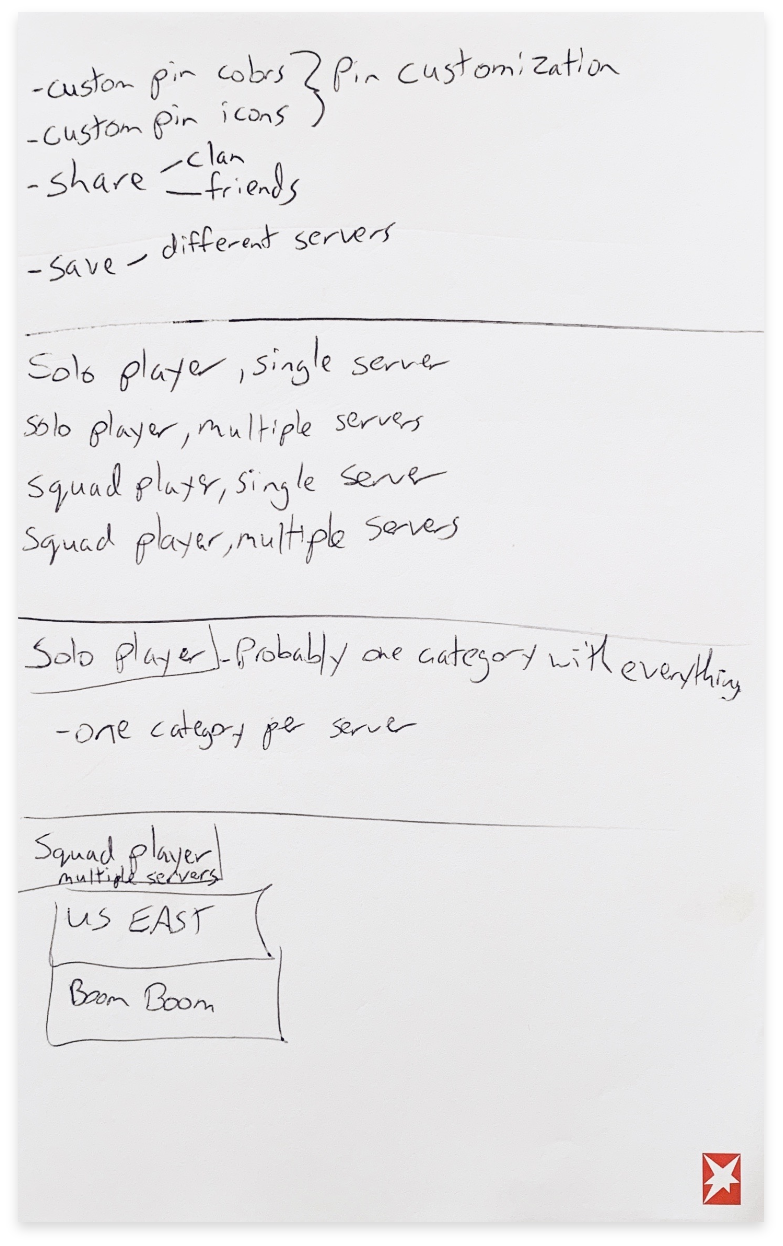 -custom pin colors } Pin customization
-custom pin icons
-share - clan
- friends
-save - different servers
Solo player, single server
solo player, multiple servers
squad player, single server
Squad player, multiple servers
Solo player - Probably one category with everything
-one category per server
Squad player
multiple servers
US EAST
Boom Boom